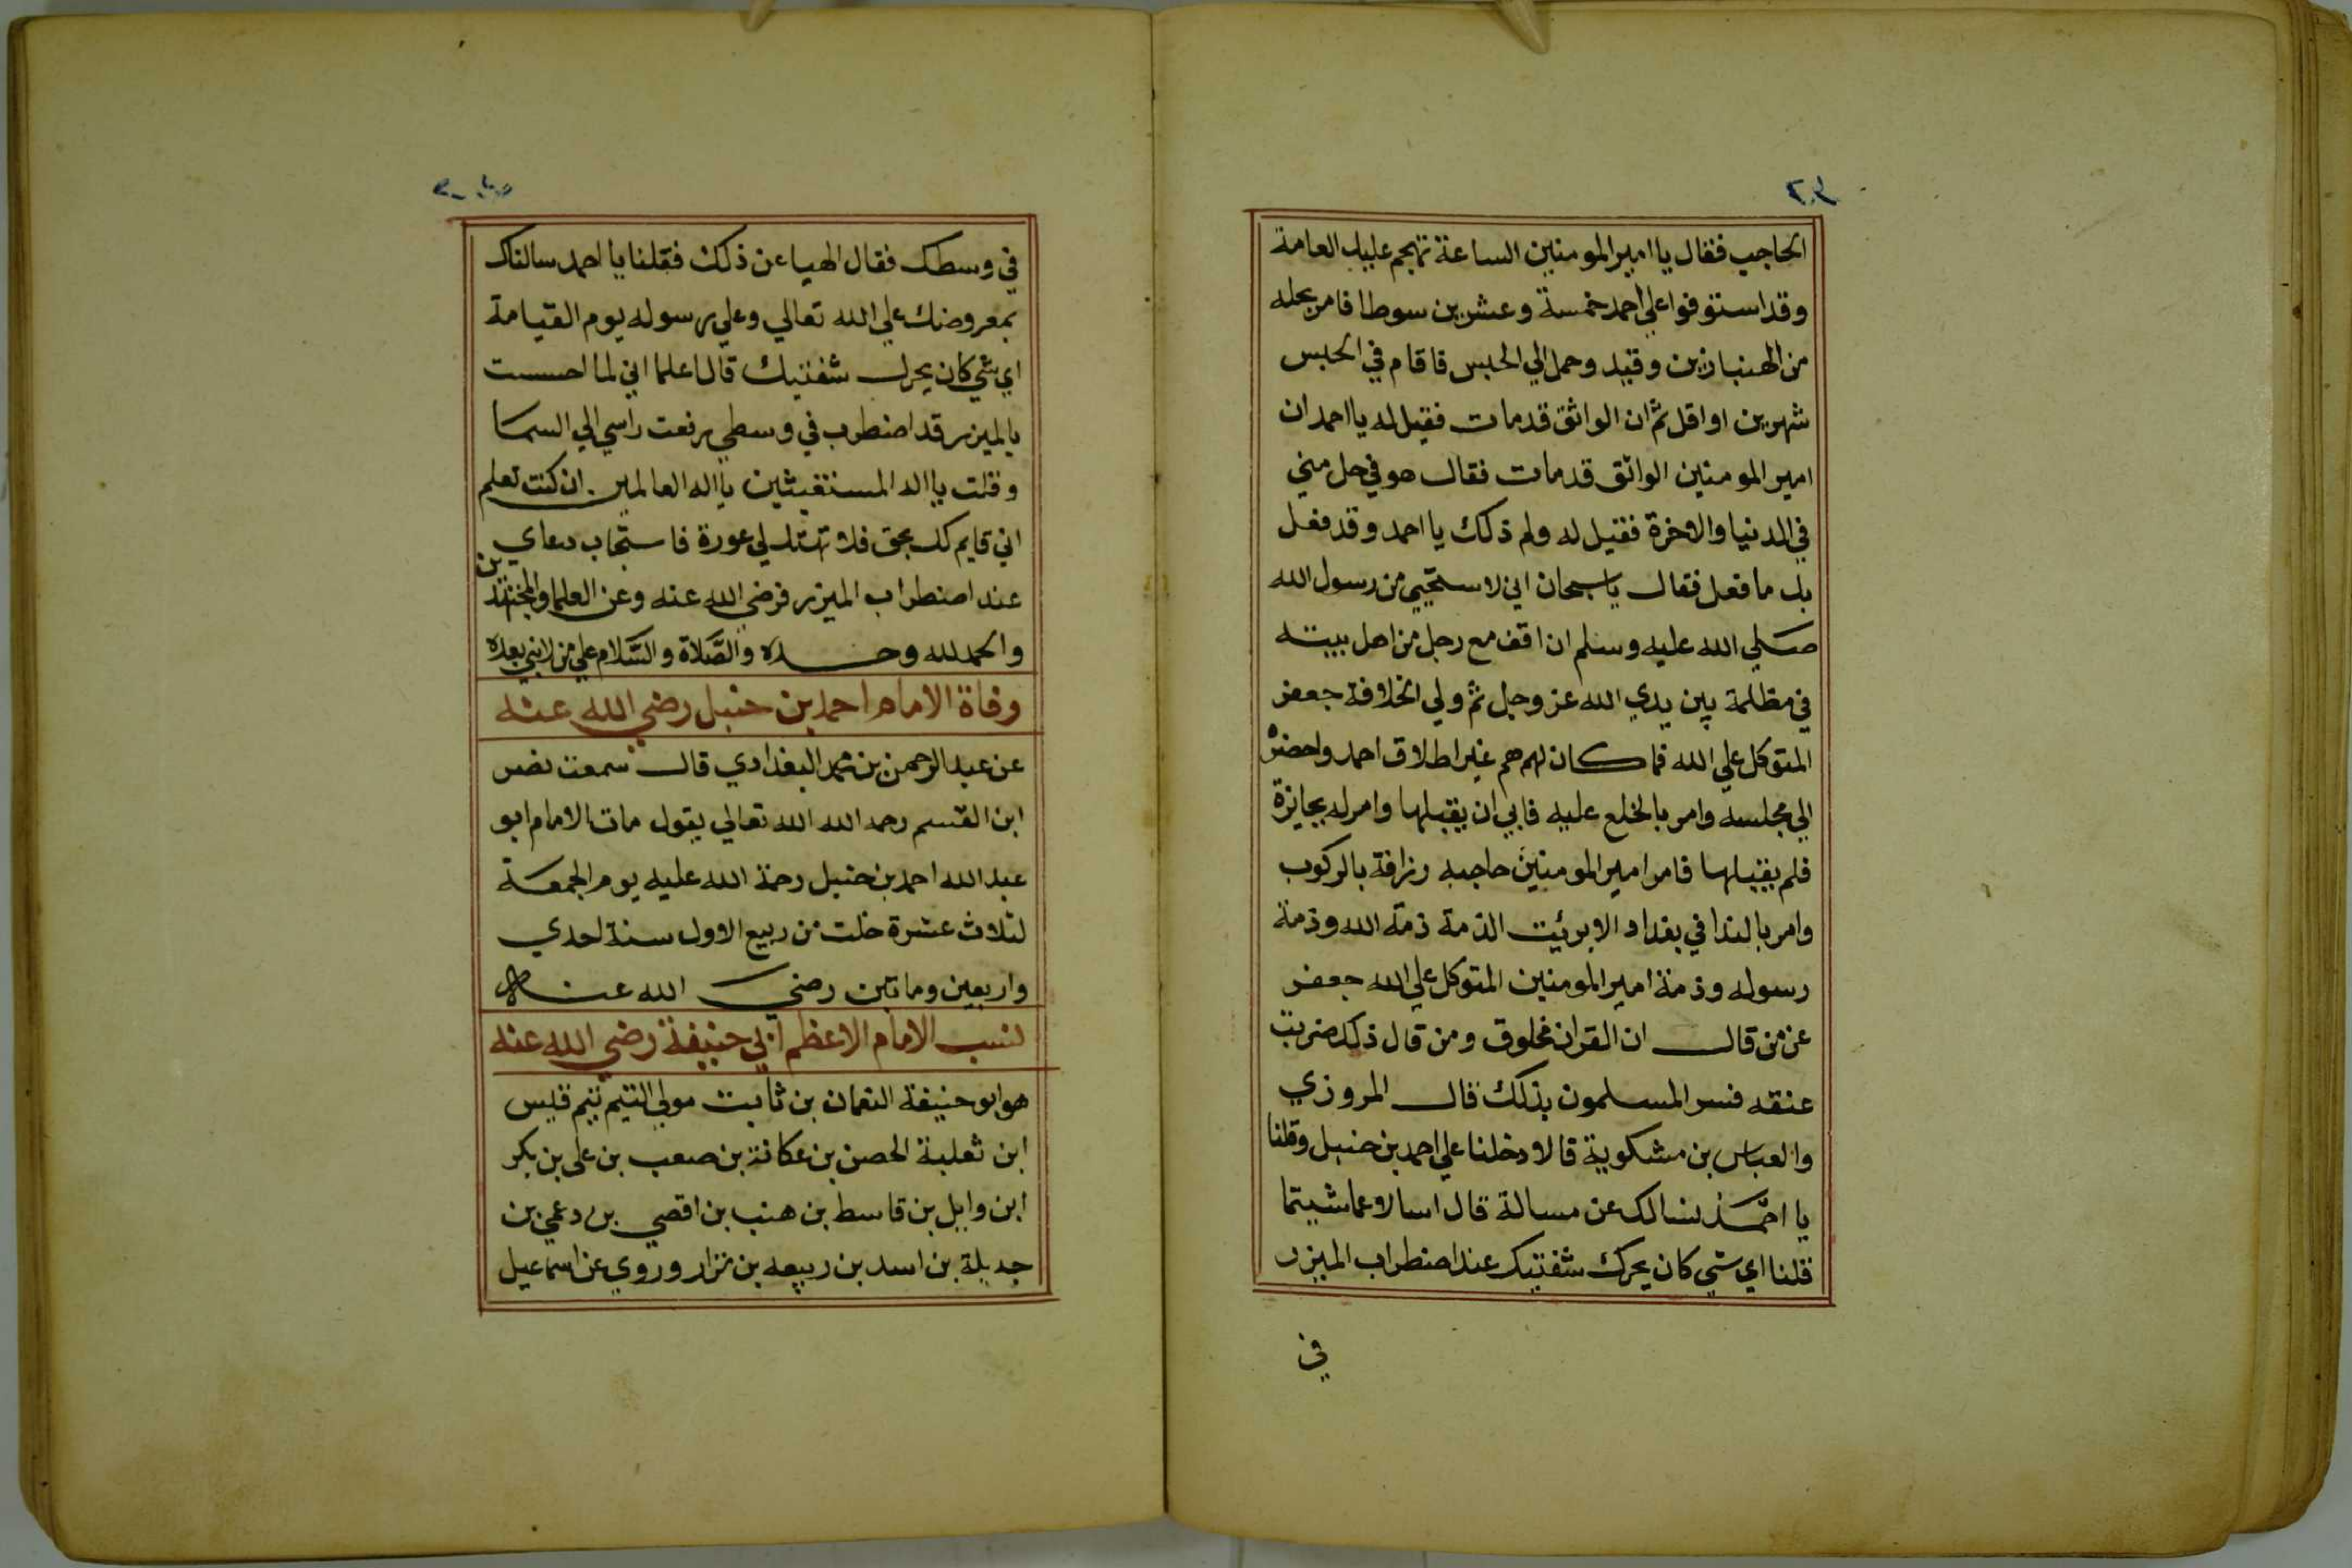 الحاجب فقال يا امير المومنين الساعة تهجم عليك العامة
وقد استوفوا علي احمد خمسة وعشرين سوطا فامر بحله
من الهنبازين وقيد وحمل الي الحبس فاقام في الحبس
شهرين او اقل ثم ان الواثق قد مات فقيل له يا احمد ان
امير المومنين الواثق قد مات فقال هو في حل مني
في الدنيا والاخرة فقيل له ولم ذلك يا احمد وقد فعل
بك ما فعل فقال يا سبحان اني لاستحيي من رسول الله
صلي الله عليه وسلم ان اقف مع رجل من اهل بيته
في مظلمة بين يدي الله عز وجل ثم ولي الخلافة جعفر
المتوكل علي الله فما كان لهم هم غير اطلاق احمد واحضره
الي مجلسه وامر بالخلع عليه فابي ان يقبلها وامر له بجايزة
فلم يقبلها فامر امير المومنين حاجبه زرافة بالركوب
وامر بالندا في بغداد الا برئيت الذمة ذمة الله وذمة
رسوله وذمة امير المومنين المتوكل علي الله جعفر
عن من قال ان القران مخلوق ومن قال ذلك ضربت
عنقه فسر المسلمون بذلك قال المروزي
والعباس بن مشكوية قالا دخلنا علي احمد بن حنبل وقلنا
يا احمد نسالك عن مسالة قال اسالا عما شيتما
قلنا اي شي كان يحرك شفتيك عند اضطراب الميزر
في
في وسطك فقال الهيا عن ذلك فقلنا يا احمد سالناك
بمعروضك علي الله تعالي وعلي رسوله يوم القيامة
اي شي كان يحرك شفتيك قال اعلما اني لما احسست
بالميزر قد اضطرب في وسطي رفعت راسي الي السما
وقلت يا اله المستغيثين يا اله العالمين ان كنت تعلم
اني قايم لك بحق فلا تهتك لي عورة فاستجاب دعاي
عند اضطراب الميزر فرضي الله عنه وعن العلما والمجتهدين
والحمد لله وحده والصلاة والسلام علي من لا نبي بعده
وفاة الامام احمد بن حنبل رضي الله عنه
عن عبد الرحمن بن محمد البغدادي قال سمعت نصر
ابن القسم رحمه الله الله تعالي يقول مات الامام ابو
عبد الله احمد بن حنبل رحمة الله عليه يوم الجمعة
لثلاث عشرة خلت من ربيع الاول سنة احدي
واربعين وماتين رضي الله عنه
نسب الامام الاعظم ابي حنيفة رضي الله عنه
هو ابو حنيفة النعمان بن ثابت مولي التيم تيم قيس
ابن ثعلبة الحصن بن عكانة بن صعب بن علي بن بكر
ابن وايل بن قاسط بن هنب بن اقصي بن دعمي بن
جديلة بن اسد بن ربيعه بن نزار وروي عن اسماعيل